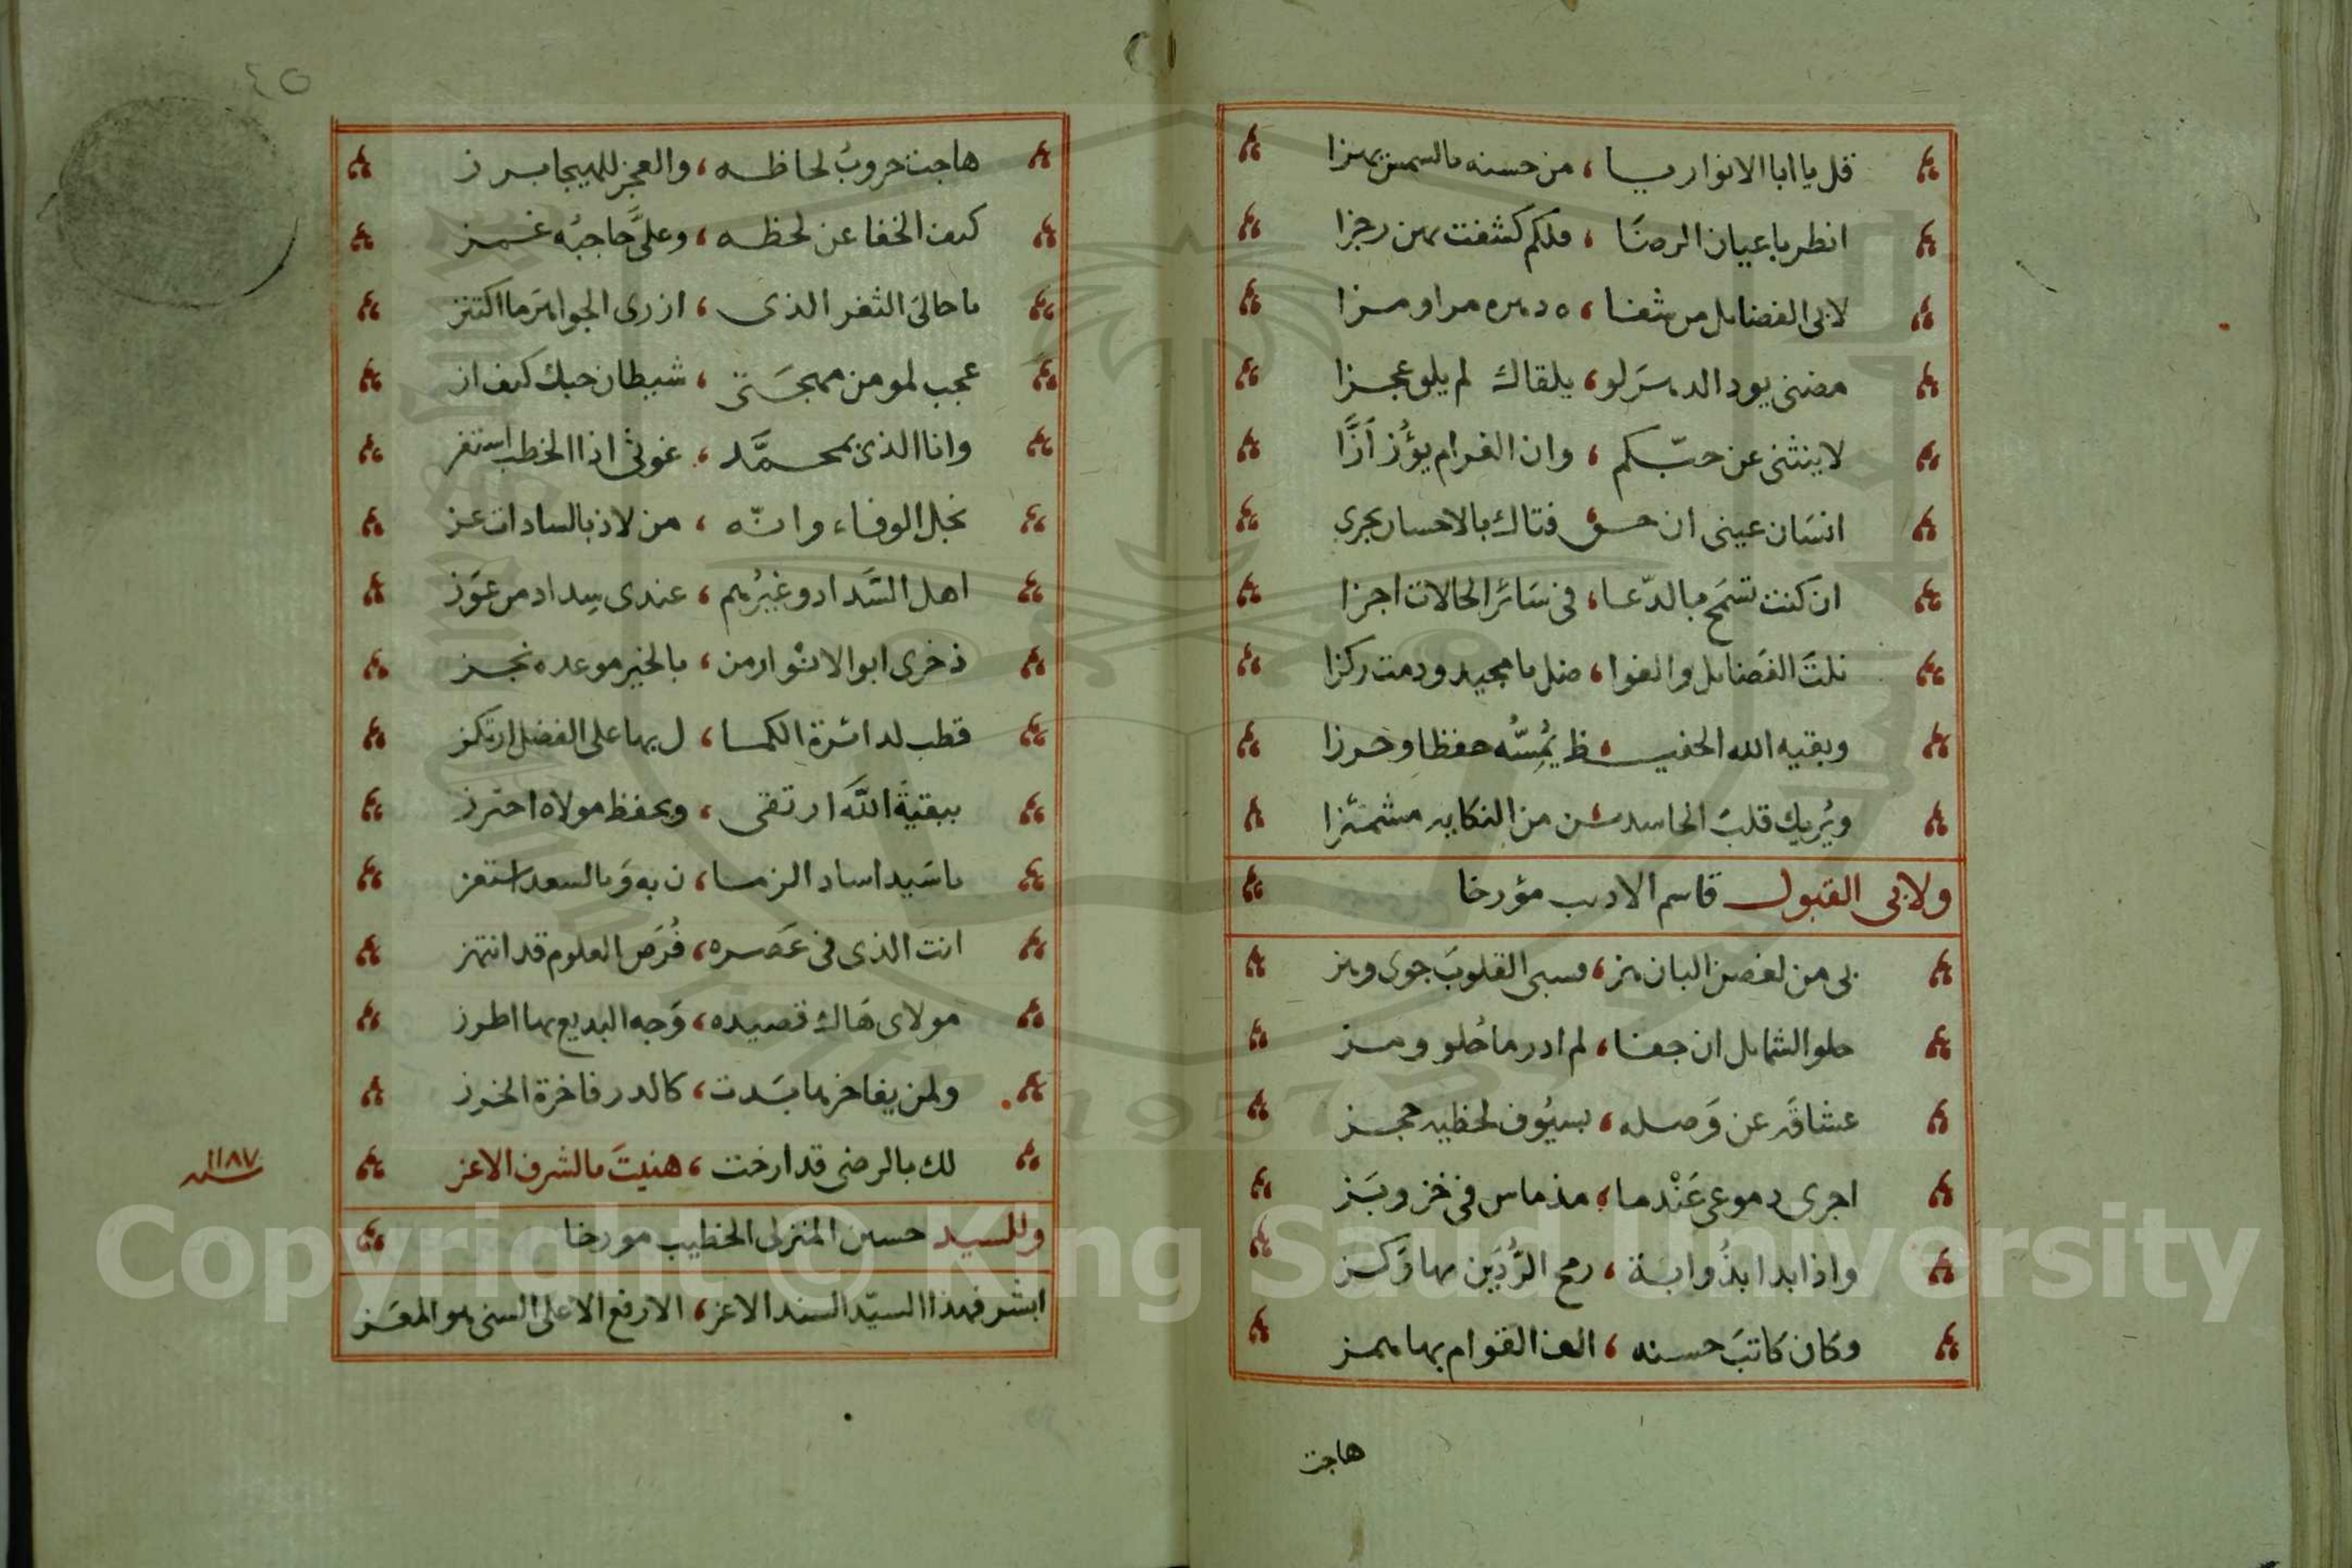 قل يا ابا الانوار يا ، من حسنه بالشمس يهزا
انظر باعيان الرضا ، فلكم كشفت بهن رجزا
لابى الفضايل من شفا ، ه دهره مرا ومزا
مضنى يود الدهر لو ، يلقاك لم يلق عجزا
لا ينثنى عن حبّكم ، وان الغرام يؤز أزّا
انسان عينى ان حسو فتاك بالاحسان يجرى
ان كنت تسمح بالدّعا ، فى سائر الحالات اجزا
نلت الفضايل والفوا ، ضل يا مجيد ودمت ركزا
وبقيه الله الحفيـ ـظ يمُسّه حفظا وحرزا
ويُريك قلب الحاسديـ ـن من النكايه مشمئزا
ولابى القبول قاسم الاديب مؤرخا
بى من لغصن البان هز ، وسبى القلوب جوى وبز
حلو الشمايل ان جفا ، لم ادر ما حلو ومز
عشاقه عن وصله ، بسيوف لحظيه حجز
اجرى دموعى عَنْدما ، مذ ماس فى خز وبَز
واذا بدا بذُوابة ، رمح الرُّدَين بها رَكز
وكان كاتبَ حسنه ، الف القوام بها همز
هاجت
٤٥
هاجت حروبُ لحاظه ، والعجز للهيجا برز
كيف الخفا عن لحظه ، وعلىَّ حاجبُه غمز
يا حالىَ الثغر الذى ، ازرى الجواهرَ ما اكتنز
عجب لمومن مهجتى ، شيطان حبك كيف از
وانا الذى بمحمَّد ، غوثى اذا الخطب استفز
نجل الوفاء وانّه ، من لاذ بالسادات عز
اهل السَّداد وغيرُهم ، عندى سِداد من عَوَز
ذخرى ابو الانوار من ، بالخير موعده نجز
قطب لدائرة الكما ، ل بها على الفضل ارتكز
ببقيةَ اللهَ ارتقى ، وبحفظ مولاه احترز
يا سَيدا ساد الزما ، ن به وَبالسعد استعز
انت الذى فى عَصره ، فُرَص العلوم قد انتهز
مولاى هَاك قصيده ، وَجه البديع بها اطرز
ولمن يفاخرها بَدت ، كالدر فاخرة الخرز
لك بالرضى قد ارخت ، هنيتَ بالشرف الاعز
سنه ١١٨٧
وللسيد حسين المنزلى الخطيب مورخا
ابشر فهذا السيّد السند الاعز ، الارفع الاعلى السنى هو المعَز